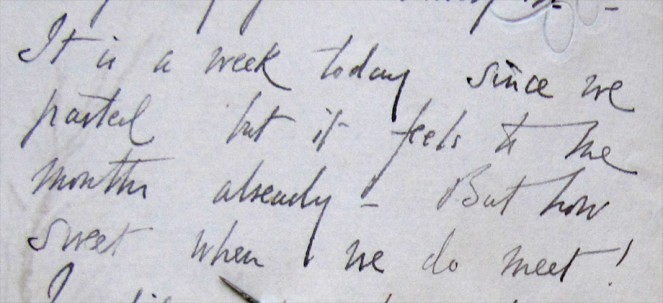 It is a week today since we
parted but it feels to me
months already - But how
sweet when we do meet!